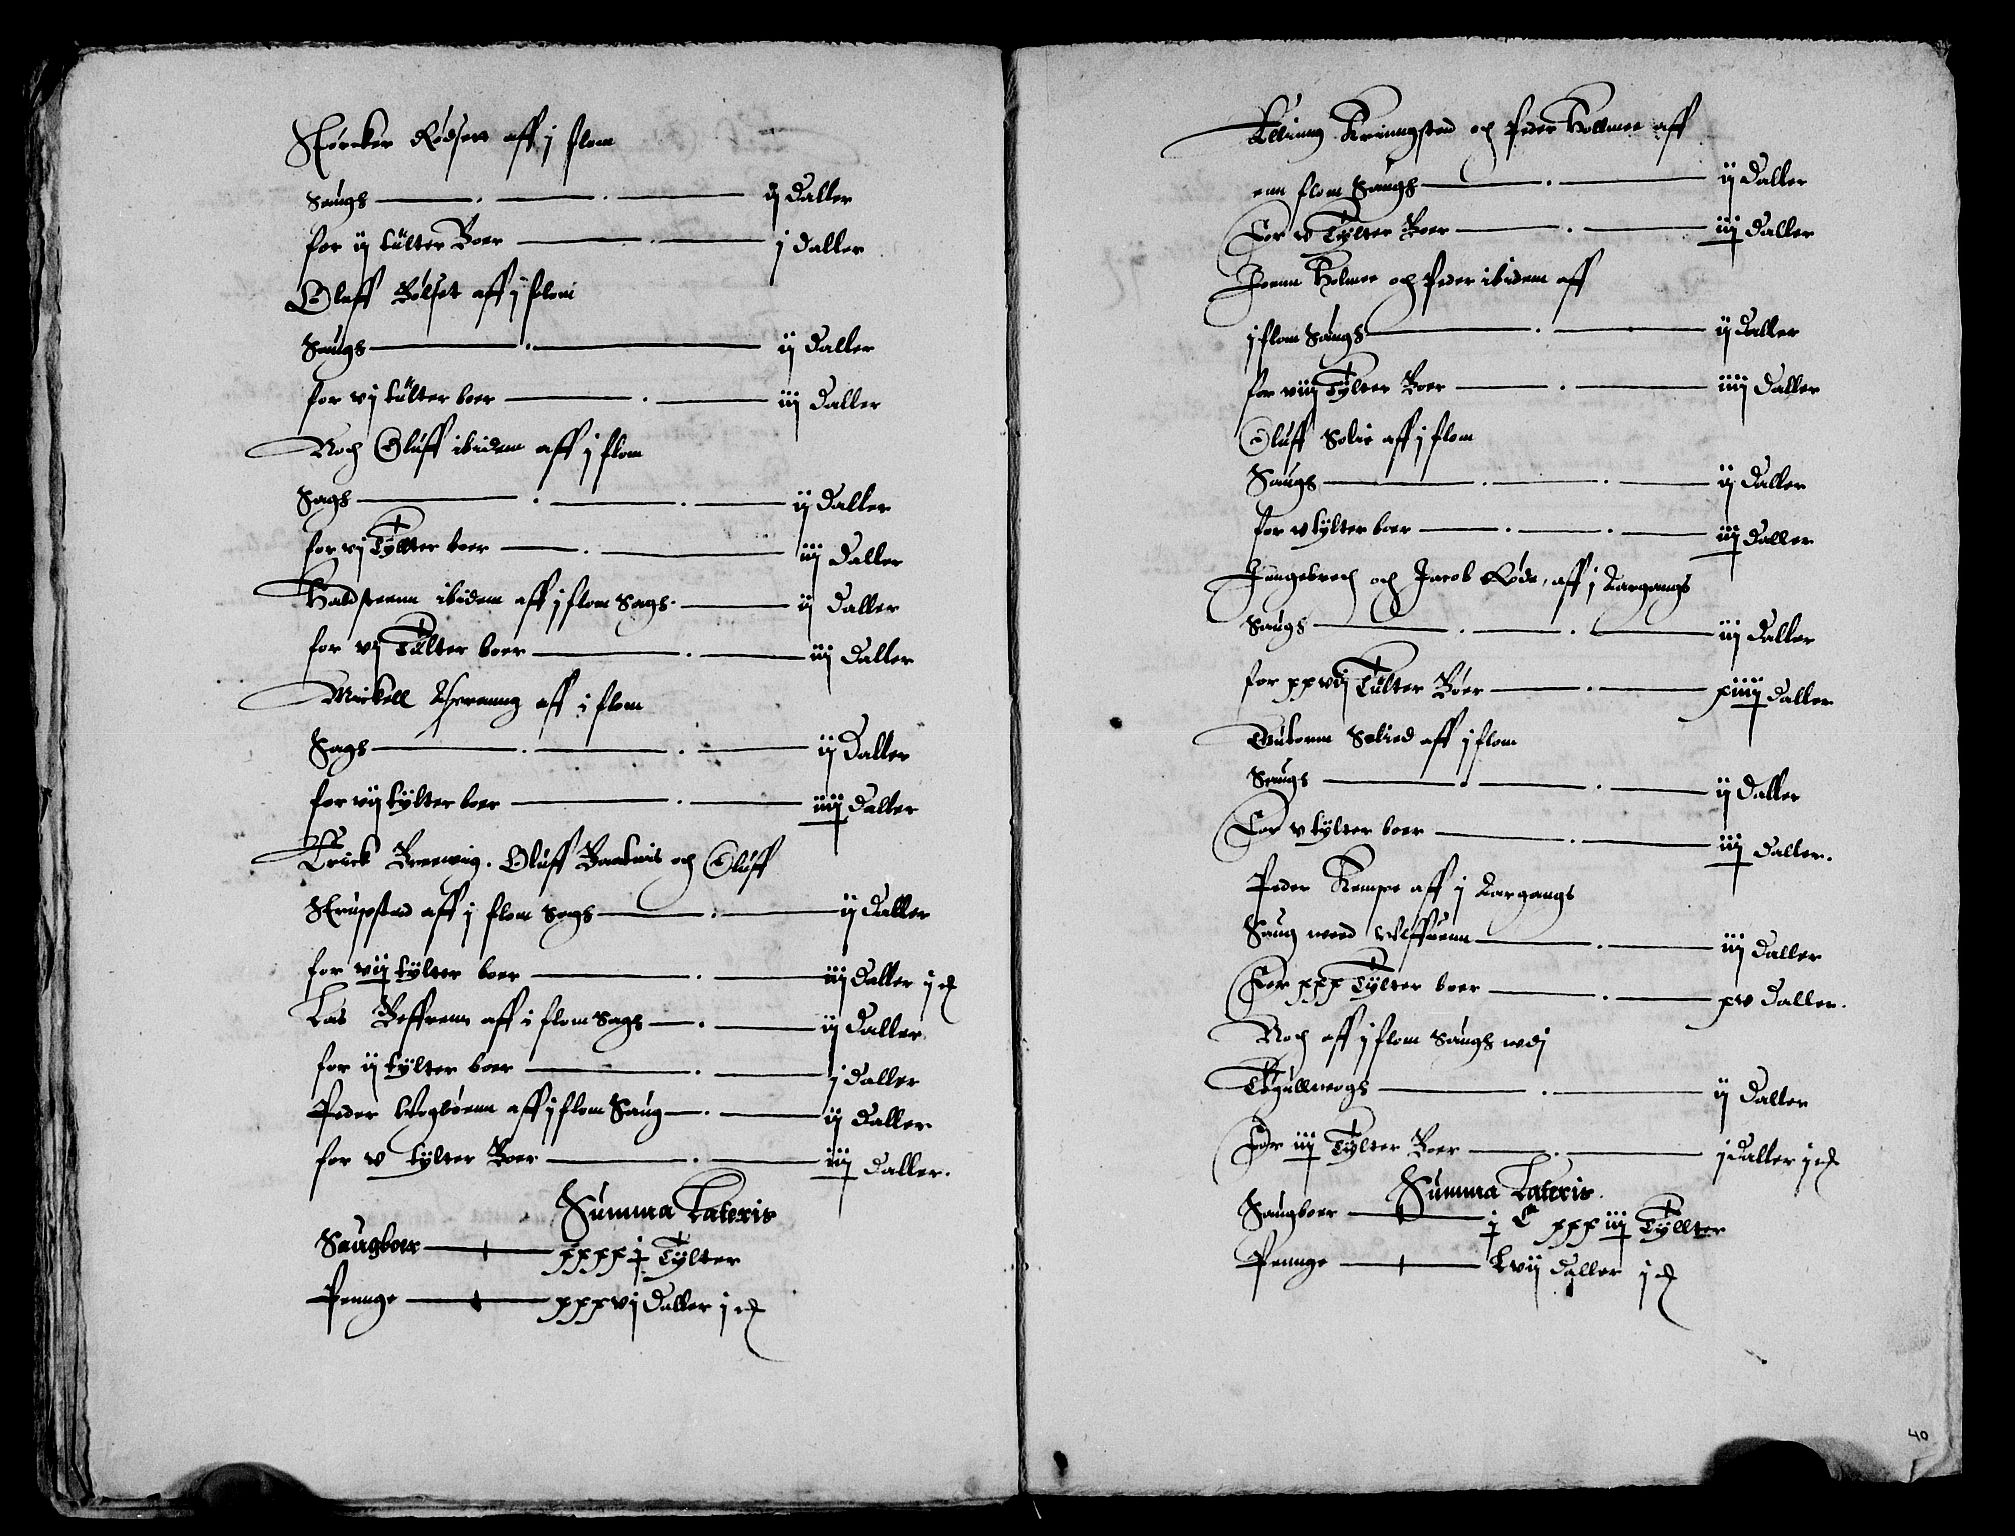 Størcker Rødsett aff j flom
Saugs ij Daller
for ij tulter Boer j Daller
Oluff Bølset aff j flom
Saugs ij Daller
for vj tulter boer iij Daller
Noch Oluff ibidem aff j flom
Sags ij Daller
for vj Tyllter boer iij Daller
Haldsteenn ibidem aff j flom Sags ij Daller
for vj Tulter boer iij Daller
Mickell aff i flom
Sags ij Daller
for vij tylter boer iiij Daller
Erick Oluff och Oluff
aff j flom Sags ij Daller
for vij tylter boer iij Daller j ort
Las aff i flom Sags ij Daller
for ij tylter boer j Daller
Peder aff j flom Saug ij Daller
for v tylter Boer iij Daller.
Summa Lateris
Saugboer xxxx j Tylter
Penge xxxvj Daller j ort
Elling och Peder Hollmee aff
enn flom Saugs ij Daller
For v Tylter Boer iij Daller
Joenn Holmee och Peder ibidem aff
j flom Saugs ij Daller
for viij Tylter Boer iiij Daller
Oluff Solie aff j flom
Saugs ij Daller
for v tylter boer iij Daller
Jngebrech och Jacob Røde, aff j Aargangs
Saugs iij Daller
for xxvij Tulter Boer xiiij Daller
Gutorm Solied aff j flom
Saugs ij Daller
For v tylter boer iij Daller.
Peder Kempe aff j Aargangs
Saug med iij Daller
For xxx Tylter boer xv Daller.
Noch aff j flom Saugs wdj
ij Daller
For iij Tylter Boer j Daller j ort
Summa Lateris.
Saugboer j C xxx iij Tyllter
Penge Lvij Daller j ort
40